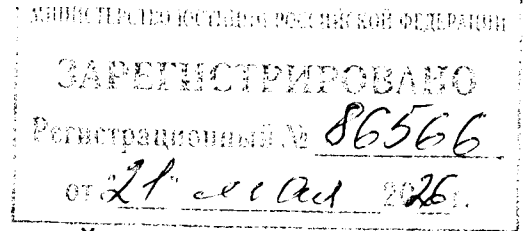 МИНИСТЕРСТВО ЮСТИЦИИ РОССИЙСКОЙ ФЕДЕРАЦИИ
ЗАРЕГИСТРИРОВАНО
Регистрационный № 86566
от "21" мая 2026 г.